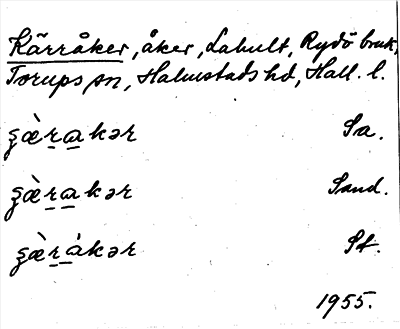 Kärråker, åker, Lahult, Rydö bruk,
Torups sn, Halmstads hd, Hall. l.
ʂæ̀r̲a̲kər Sa.
ʂæ̀r̲a̲kər Sand.
ʂæ̀r̲á̲kər St.
1955.